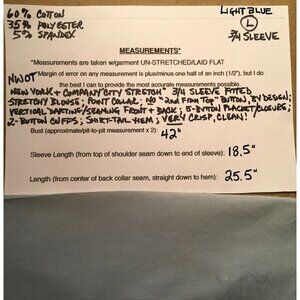 60% COTTON
35% POLYESTER
5% SPANDEX
LIGHT BLUE
L
3/4 SLEEVE
MEASUREMENTS*
*Measurements are taken w/garment UN-STRETCHED/LAID FLAT
NWOT
*Margin of error on any measurement is plus/minus one half of an inch (1/2"), but I do
the best I can to provide the most accurate measurements possible.
NEW YORK + COMPANY "CITY STRETCH" 3/4 SLEEVE FITTED
STRETCHY BLOUSE; POINT COLLAR; NO "2nd FROM TOP" BUTTON, BY DESIGN;
VERTICAL DARTING/SEAMING FRONT + BACK; 5-BUTTON PLACKET/CLOSURE;
2-BUTTON CUFFS; SHIRT-TAIL HEM; VERY CRISP, CLEAN!
Bust (approximate/pit-to-pit measurement x 2): 42"
Sleeve Length (from top of shoulder seam down to end of sleeve): 18.5"
Length (from center of back collar seam, straight down to hem): 25.5"